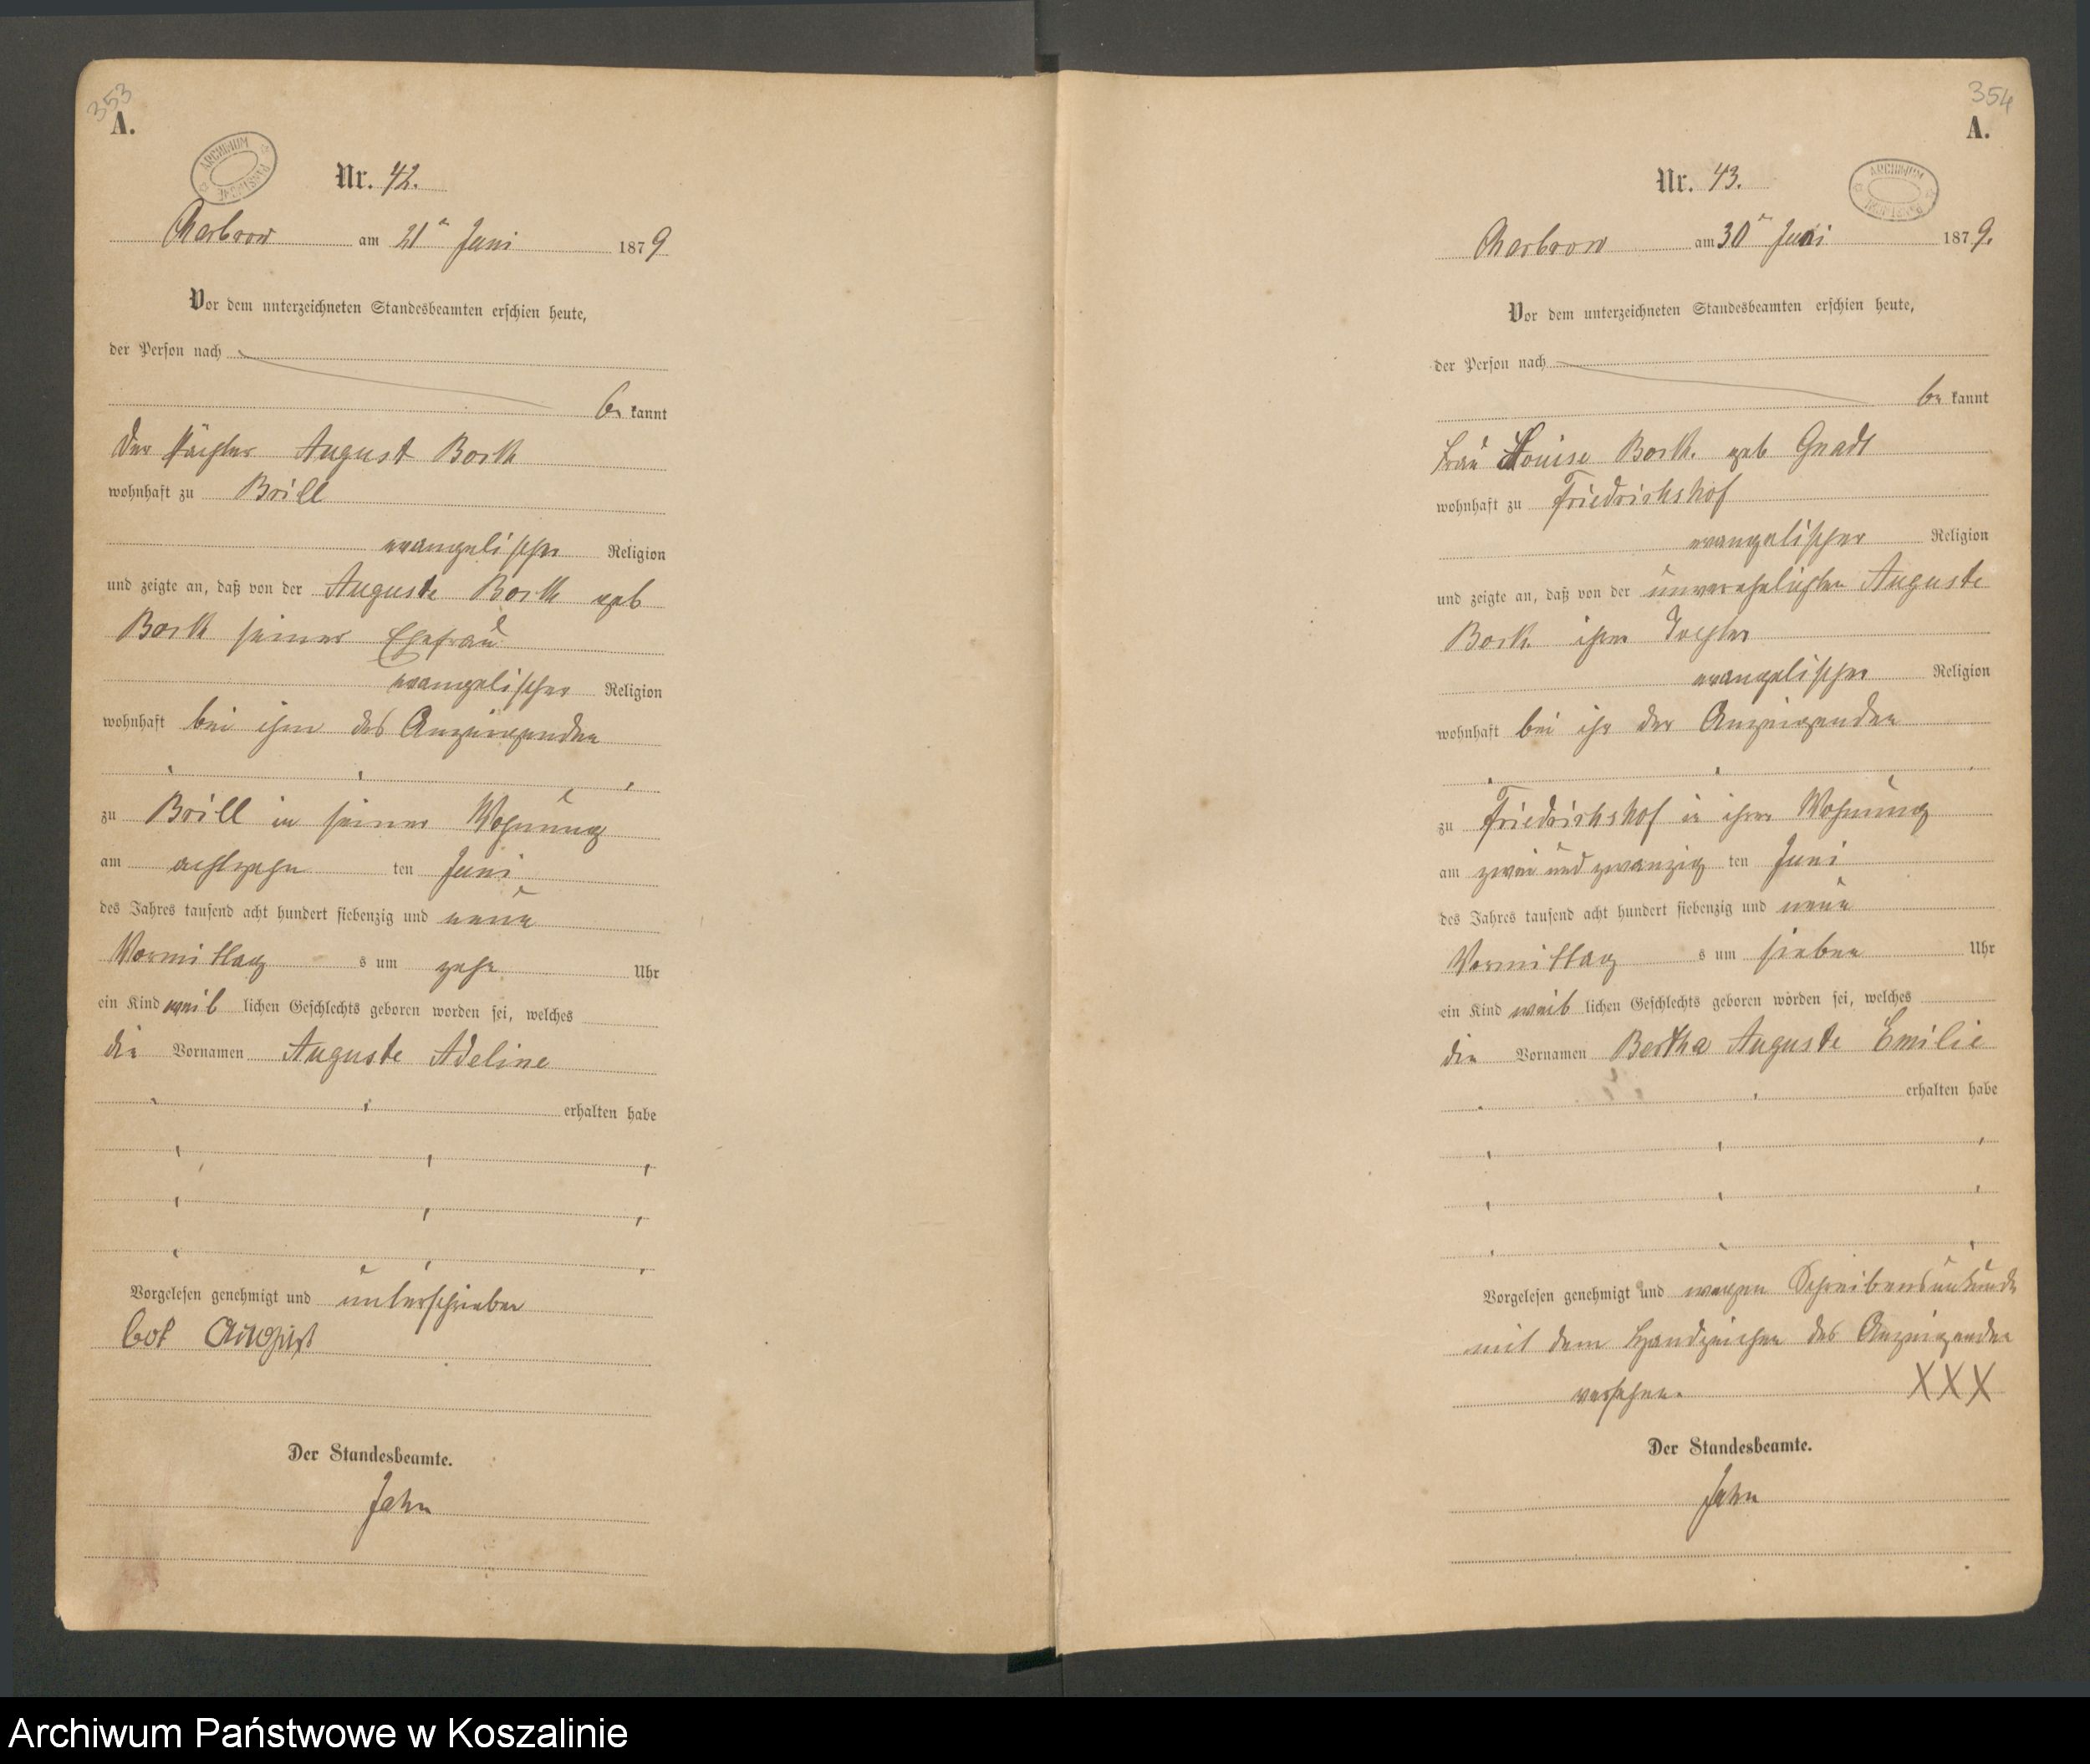 353
A.
ARCHIWUM
Nr. 42.
Charbrow am 21ᵗ Juni 1879
Vor dem unterzeichneten Standesbeamten erschien heute,
der Person nach
be kannt
der Pächter August Bork
wohnhaft zu Brill
evangelischer Religion
und zeigte an, daß von der Auguste Bork geb
Bork seiner Ehefrau
evangelischer Religion
wohnhaft bei ihm des Anzeigenden
zu Brill in seiner Wohnung
am achtzehn ten Juni
des Jahres tausend acht hundert siebenzig und neun
Vormittag s um zehn Uhr
ein Kind weib lichen Geschlechts geboren worden sei, welches
die Vornamen Auguste Adeline
erhalten habe
Vorgelesen genehmigt und unterschrieben
August
Der Standesbeamte.
Jahn
354
A.
ARCHIWUM
Nr. 43.
Charbrow am 30ᵗ Juni 1879.
Vor dem unterzeichneten Standesbeamten erschien heute,
der Person nach
be kannt
Frau Louise Bork. geb Gnadt
wohnhaft zu Friedrichshof
evangelischer Religion
und zeigte an, daß von der unverehelichten Auguste
Bork. ihrer Tochter
evangelischer Religion
wohnhaft bei ihr der Anzeigenden
zu Friedrichshof in ihrer Wohnung
am zwei und zwanzig ten Juni
des Jahres tausend acht hundert siebenzig und neun
Vormittag s um sieben Uhr
ein Kind weib lichen Geschlechts geboren worden sei, welches
die Vornamen Bertha Auguste Emilie
erhalten habe
Vorgelesen genehmigt und wegen Schreibensunkunde
mit dem Handzeichen des Anzeigenden
versehen. XXX
Der Standesbeamte.
Jahn
Archiwum Państwowe w Koszalinie